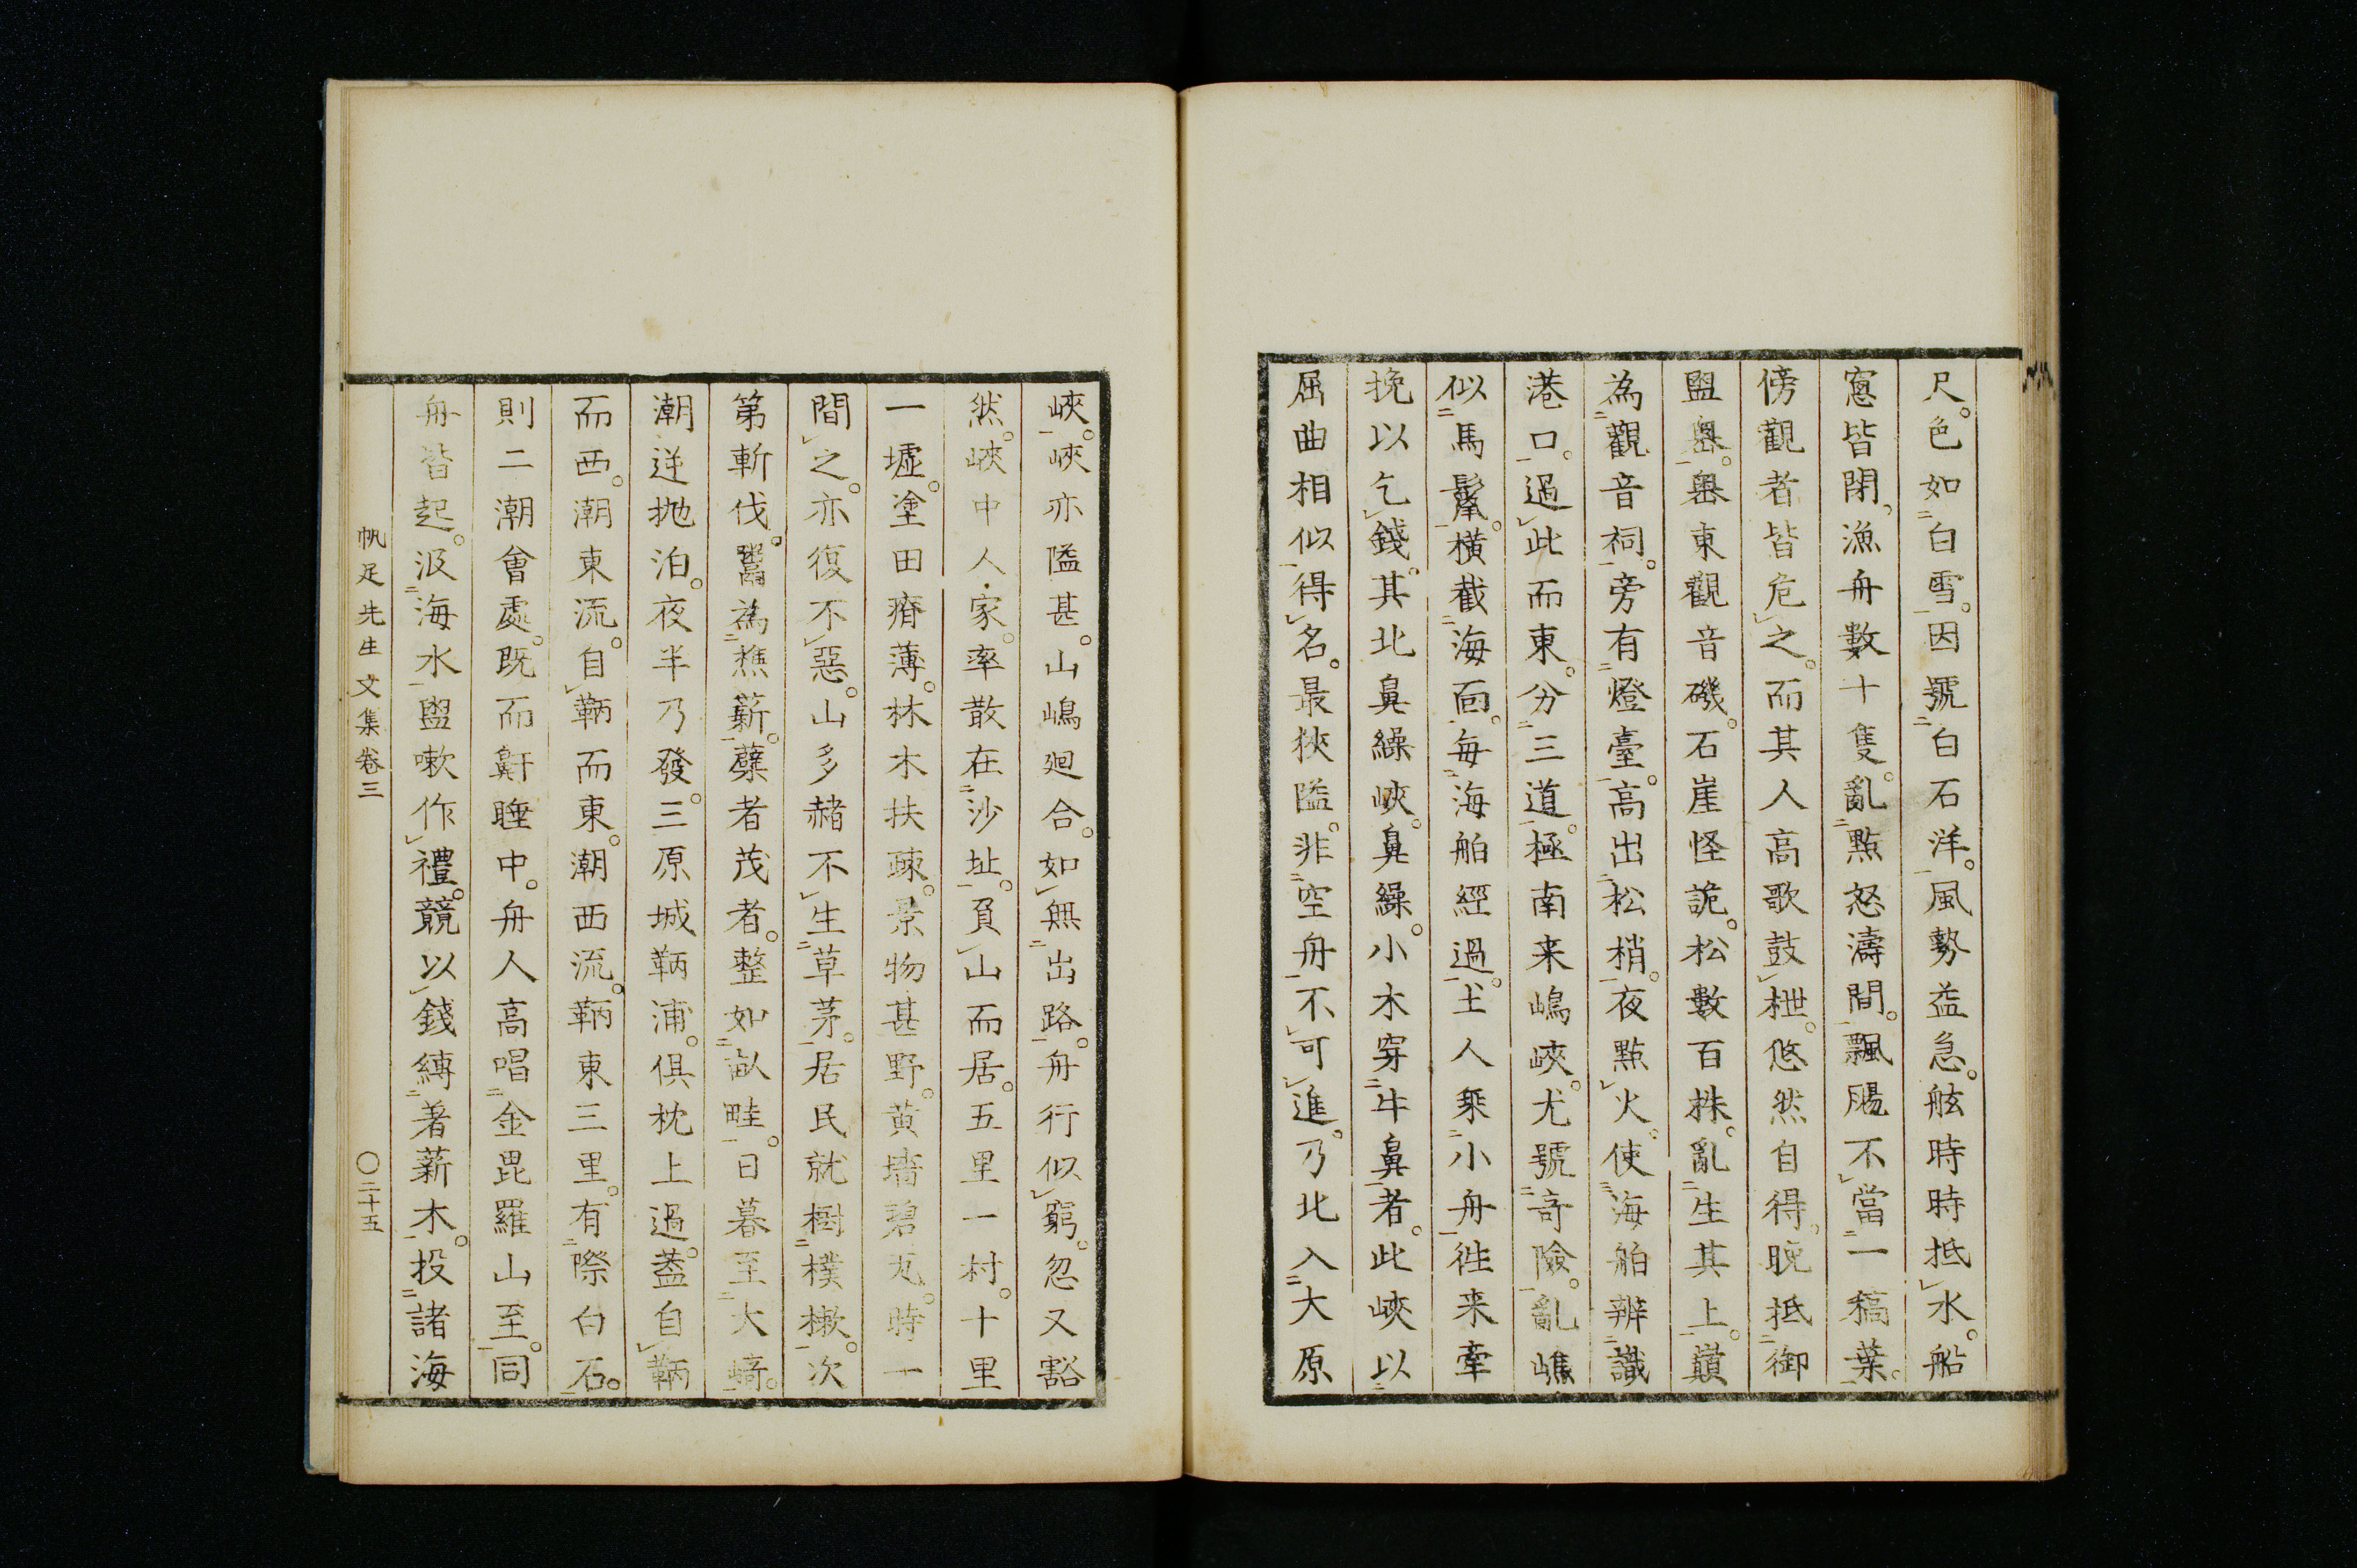 尺。色如白雪。因號白石洋。風勢益急。舷時時抵水。船
窻皆閉。漁舟數十隻。亂點怒濤間。飄颺不當一稿葉。
傍觀者皆危之。而其人高歌鼓枻。悠然自得。晚抵御
盥奧。奧東觀音磯。石崖怪詭。松數百株。亂生其上。巔
為觀音祠。旁有燈臺。高出松梢。夜點火。使海舶辨識
港口。過此而東。分三道。極南来嶋峽。尤號奇險。亂嶕
似馬鬣。橫截海面。每海舶經過。土人乘小舟往来牽
挽以乞錢。其北鼻繰峽。鼻繰。小木穿牛鼻者。此峽以
屈曲相似得名。最狹隘。非空舟不可進。乃北入大原
峽。峽亦隘甚。山嶋廻合。如無出路。舟行似窮。忽又豁
然。峽中人家。率散在沙址。負山而居。五里一村。十里
一墟。塗田瘠薄。林木扶疎。景物甚野。黄墻碧瓦。時一
間之。亦復不惡。山多赭不生草茅。居民就樹樸樕。次
第斬伐。鬻為樵薪。蘖者茂者。整如畝畦。日暮至大﨑。
潮逆拋泊。夜半乃發。三原城鞆浦。俱枕上過。葢自鞆
而西。潮東流。自鞆而東。潮西流。鞆東三里。有際白石。
則二潮會處。既而鼾睡中。舟人高唱金毘羅山至。同
舟皆起。汲海水盥嗽作禮。競以錢縛著薪木。投諸海
帆足先生文集卷三
〇二十五